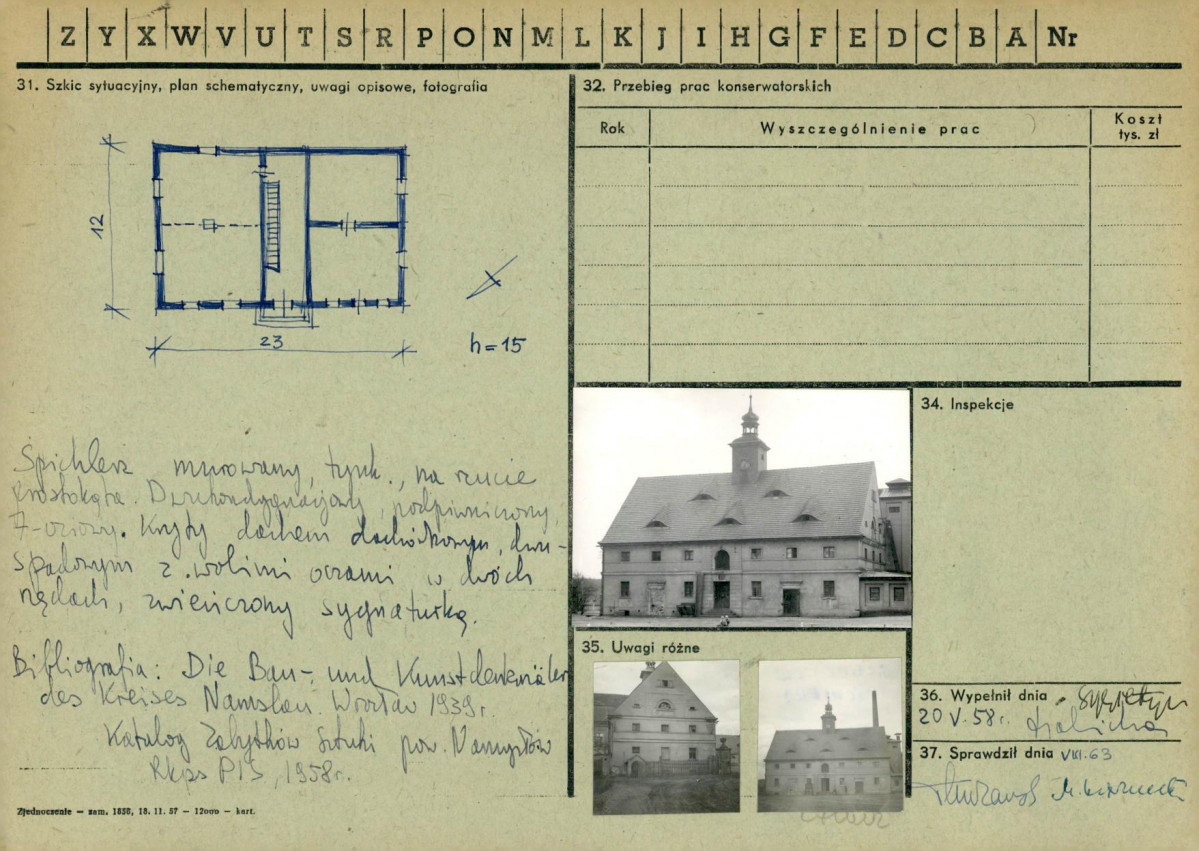 Z Y X W V U T S R P O N M L K J I H G F E D C B A Nr
31. Szkic sytuacyjny, plan schematyczny, uwagi opisowe, fotografia
12
23
h=15
Spichlerz murowany, tynk., na rzucie
prostokąta. Dwukondygnacyjowy, podpiwniczony,
7-osiowy. Kryty dachem dachówkowym, dwu-
spadowym z wolimi oczami w dwóch
rzędach, zwieńczony sygnaturką.
Bibliografia: Die Bau- und Kunstdenkmäler
des Kreises Namslau. Wrocław 1939 r.
Katalog Zabytków Sztuki pow. Namysłów
Rkps PIS, 1958 r.
Zjednoczenie — zam. 1858, 18. 11. 57 — 12000 — kart.
32. Przebieg prac konserwatorskich
Rok
Wyszczególnienie prac
Koszt
tys. zł
34. Inspekcje
35. Uwagi różne
36. Wypełnił dnia
20 V. 58 r.
37. Sprawdził dnia VIII. 63